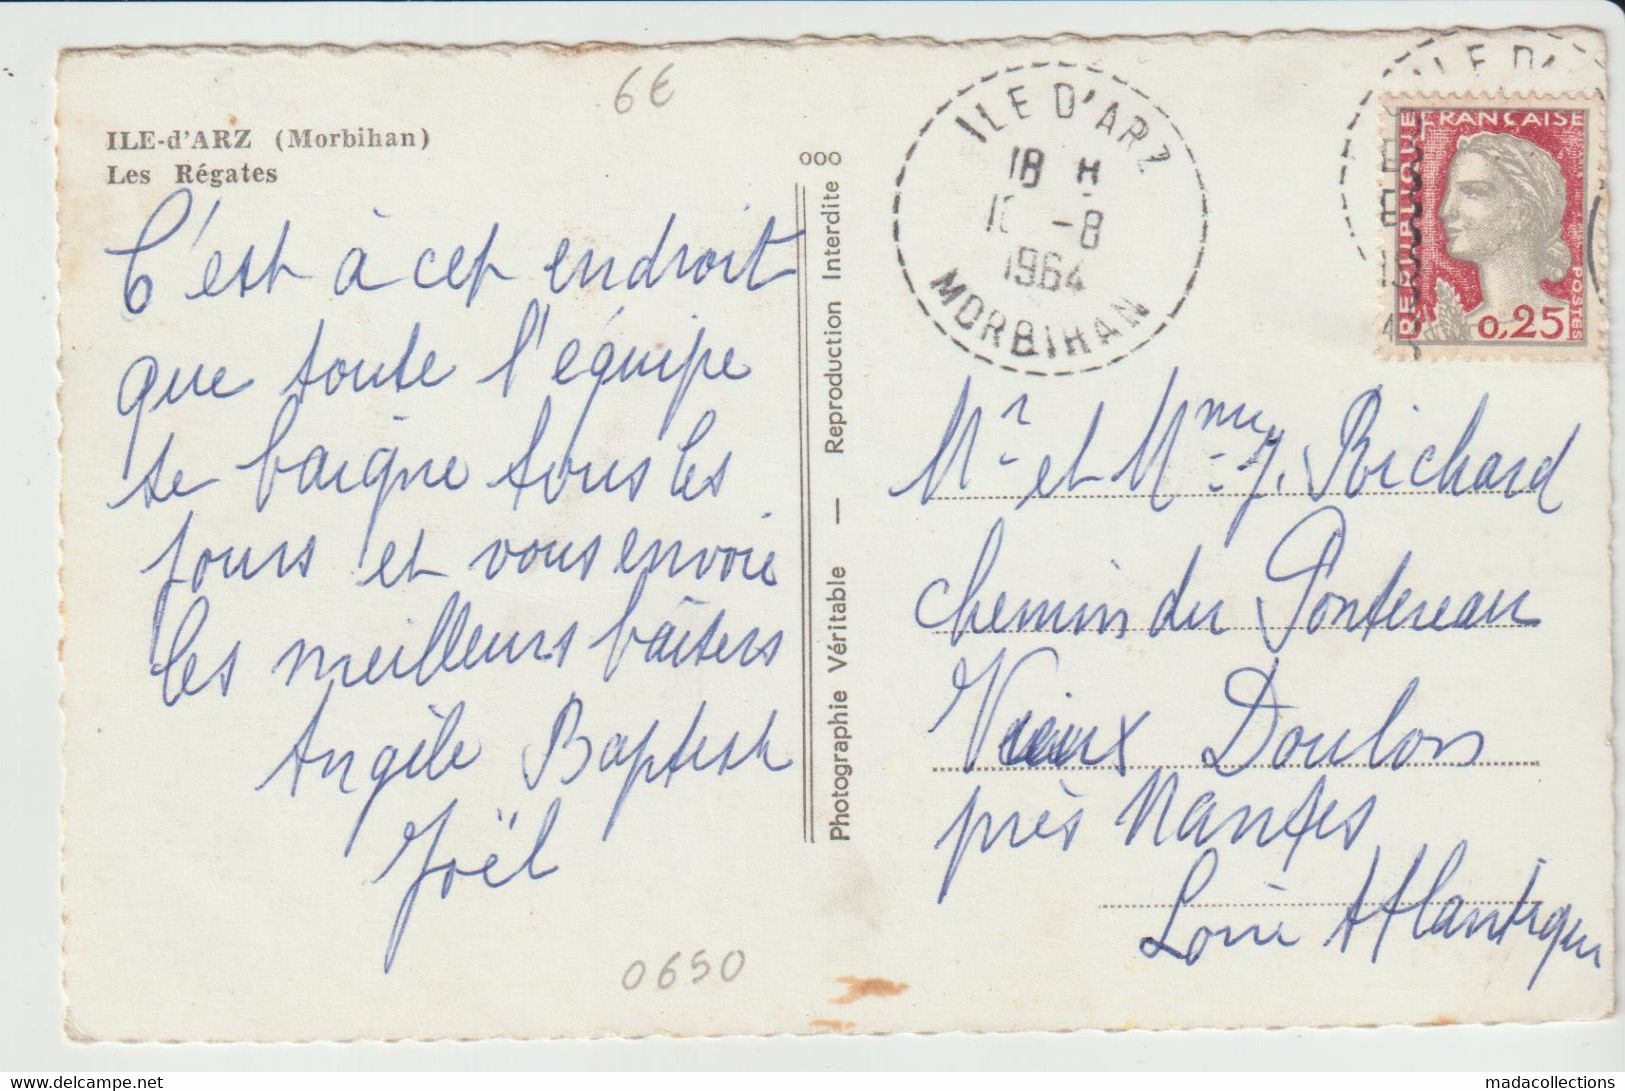 6€
ILE-d'ARZ (Morbihan)
Les Régates
C'est à cet endroit
que toute l'équipe
se baigne tous les
jours et vous envoie
les meilleurs bâisers
Angèle Baptiste
Joël
0650
Photographie Véritable — Reproduction Interdite
ooo
ILE D'ARZ
18 H
-8
1964
MORBIHAN
ILE D'
REPUBLIQUE FRANÇAISE
POSTES
0,25
Mr et Mme J. Richard
Chemin du Pontereau
Vieux Doulon
près Nantes
Loire Atlantique
madacollections